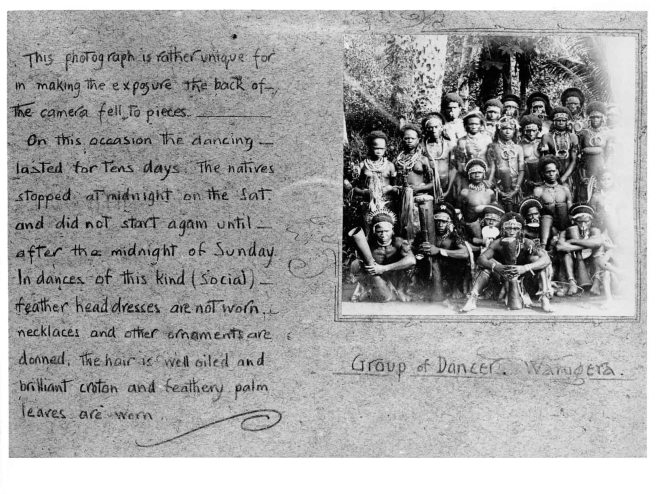 This photograph is rather unique for
in making the exposure the back of
the camera fell to pieces.
On this occasion the dancing
lasted for tens days. The natives
stopped at midnight on the Sat.
and did not start again until
after the midnight of Sunday
In dances of this kind (social)
feather headdresses are not worn.
necklaces and other ornaments are
donned. The hair is well oiled and
brilliant croton and feathery palm
leaves are worn.
Group of Dancer. Wanigera.